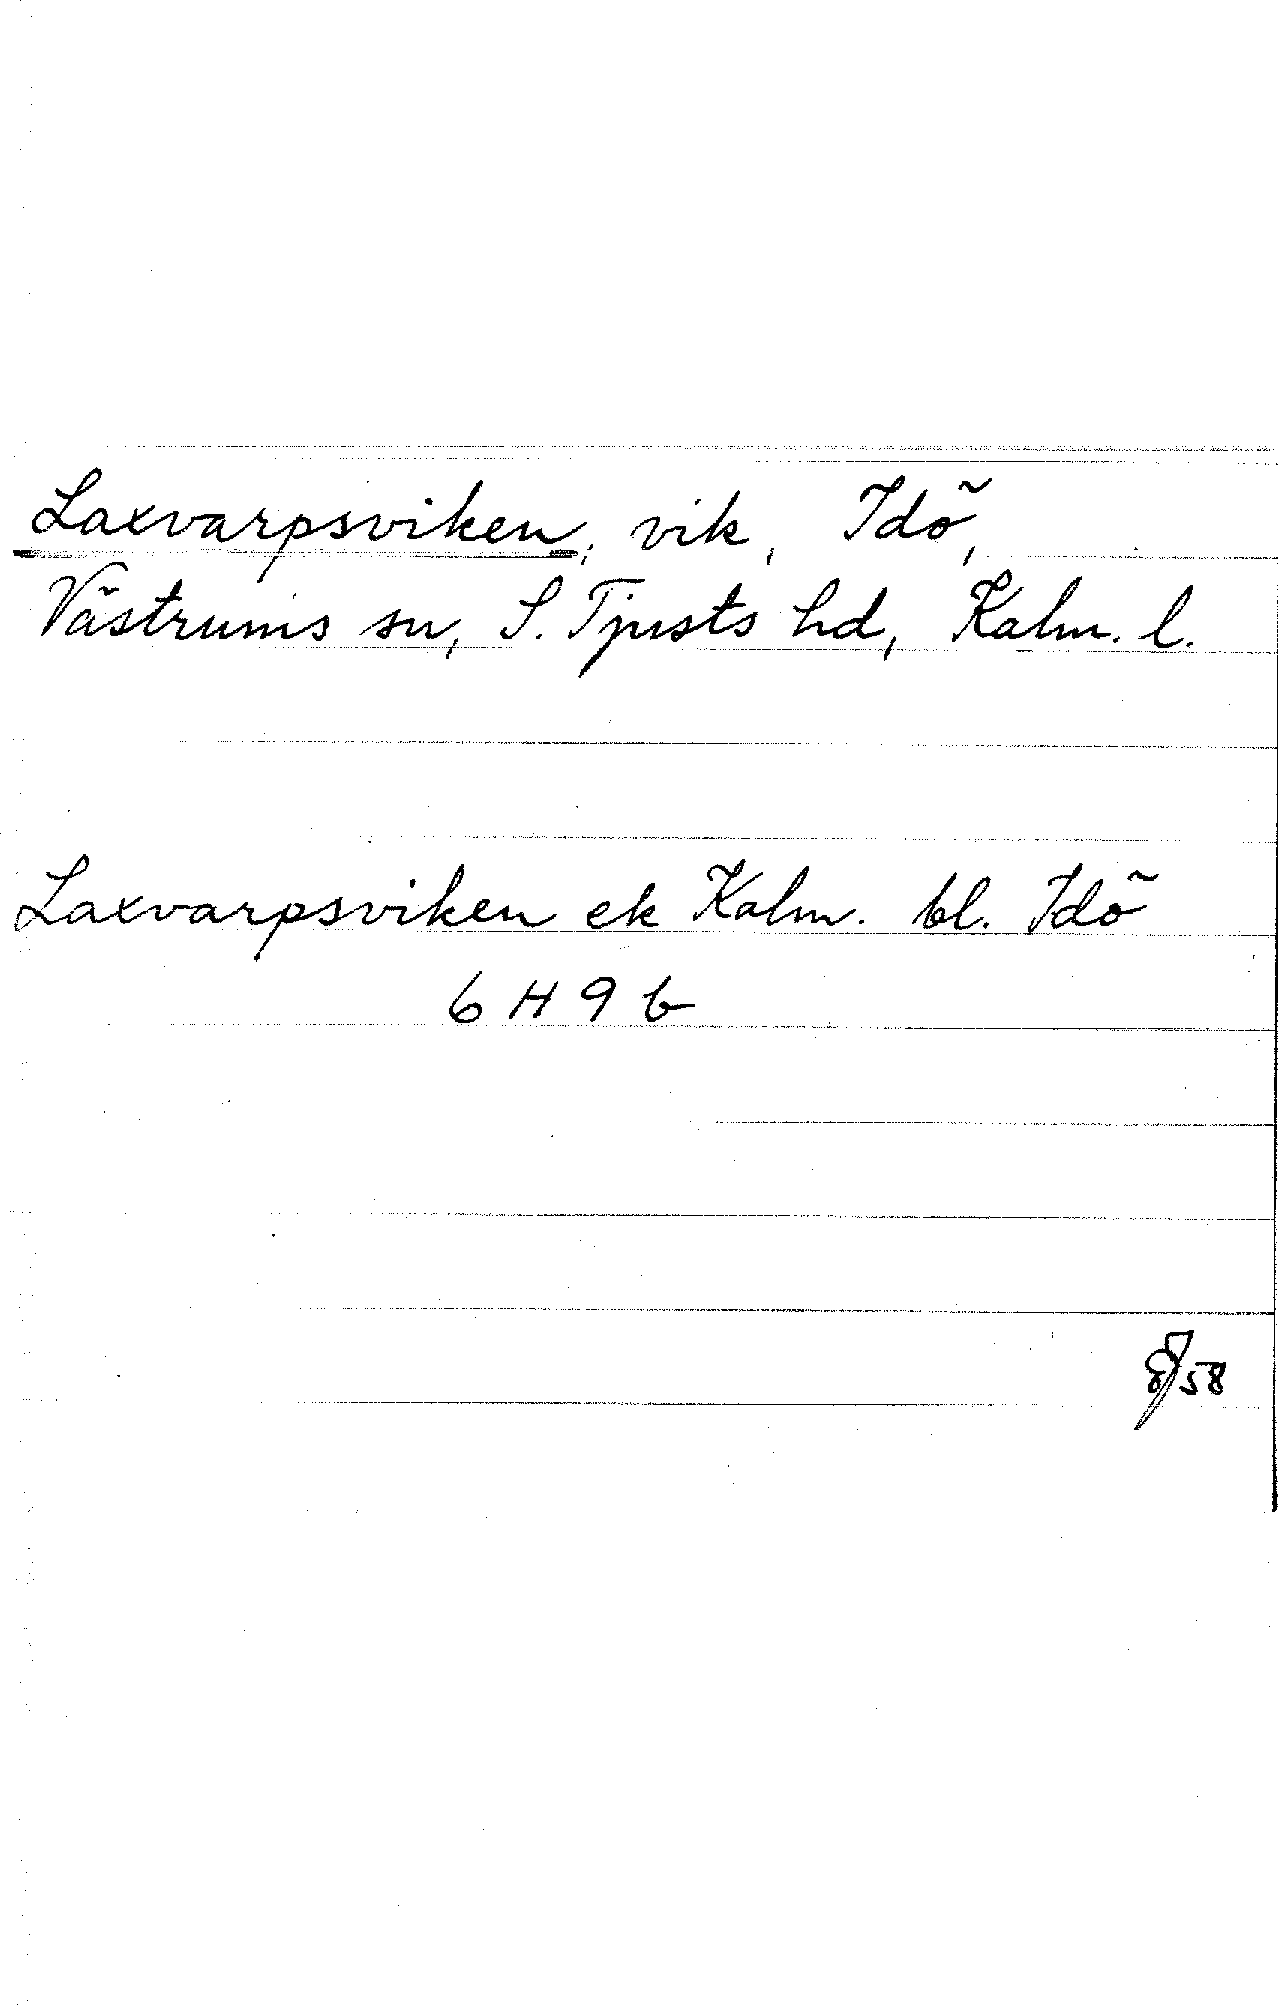 Laxvarpsviken, vik, Idö,
Västrums sn, S. Tjusts hd, Kalm. l.
Laxvarpsviken ek Kalm. bl. Idö
6 H 9 b
58